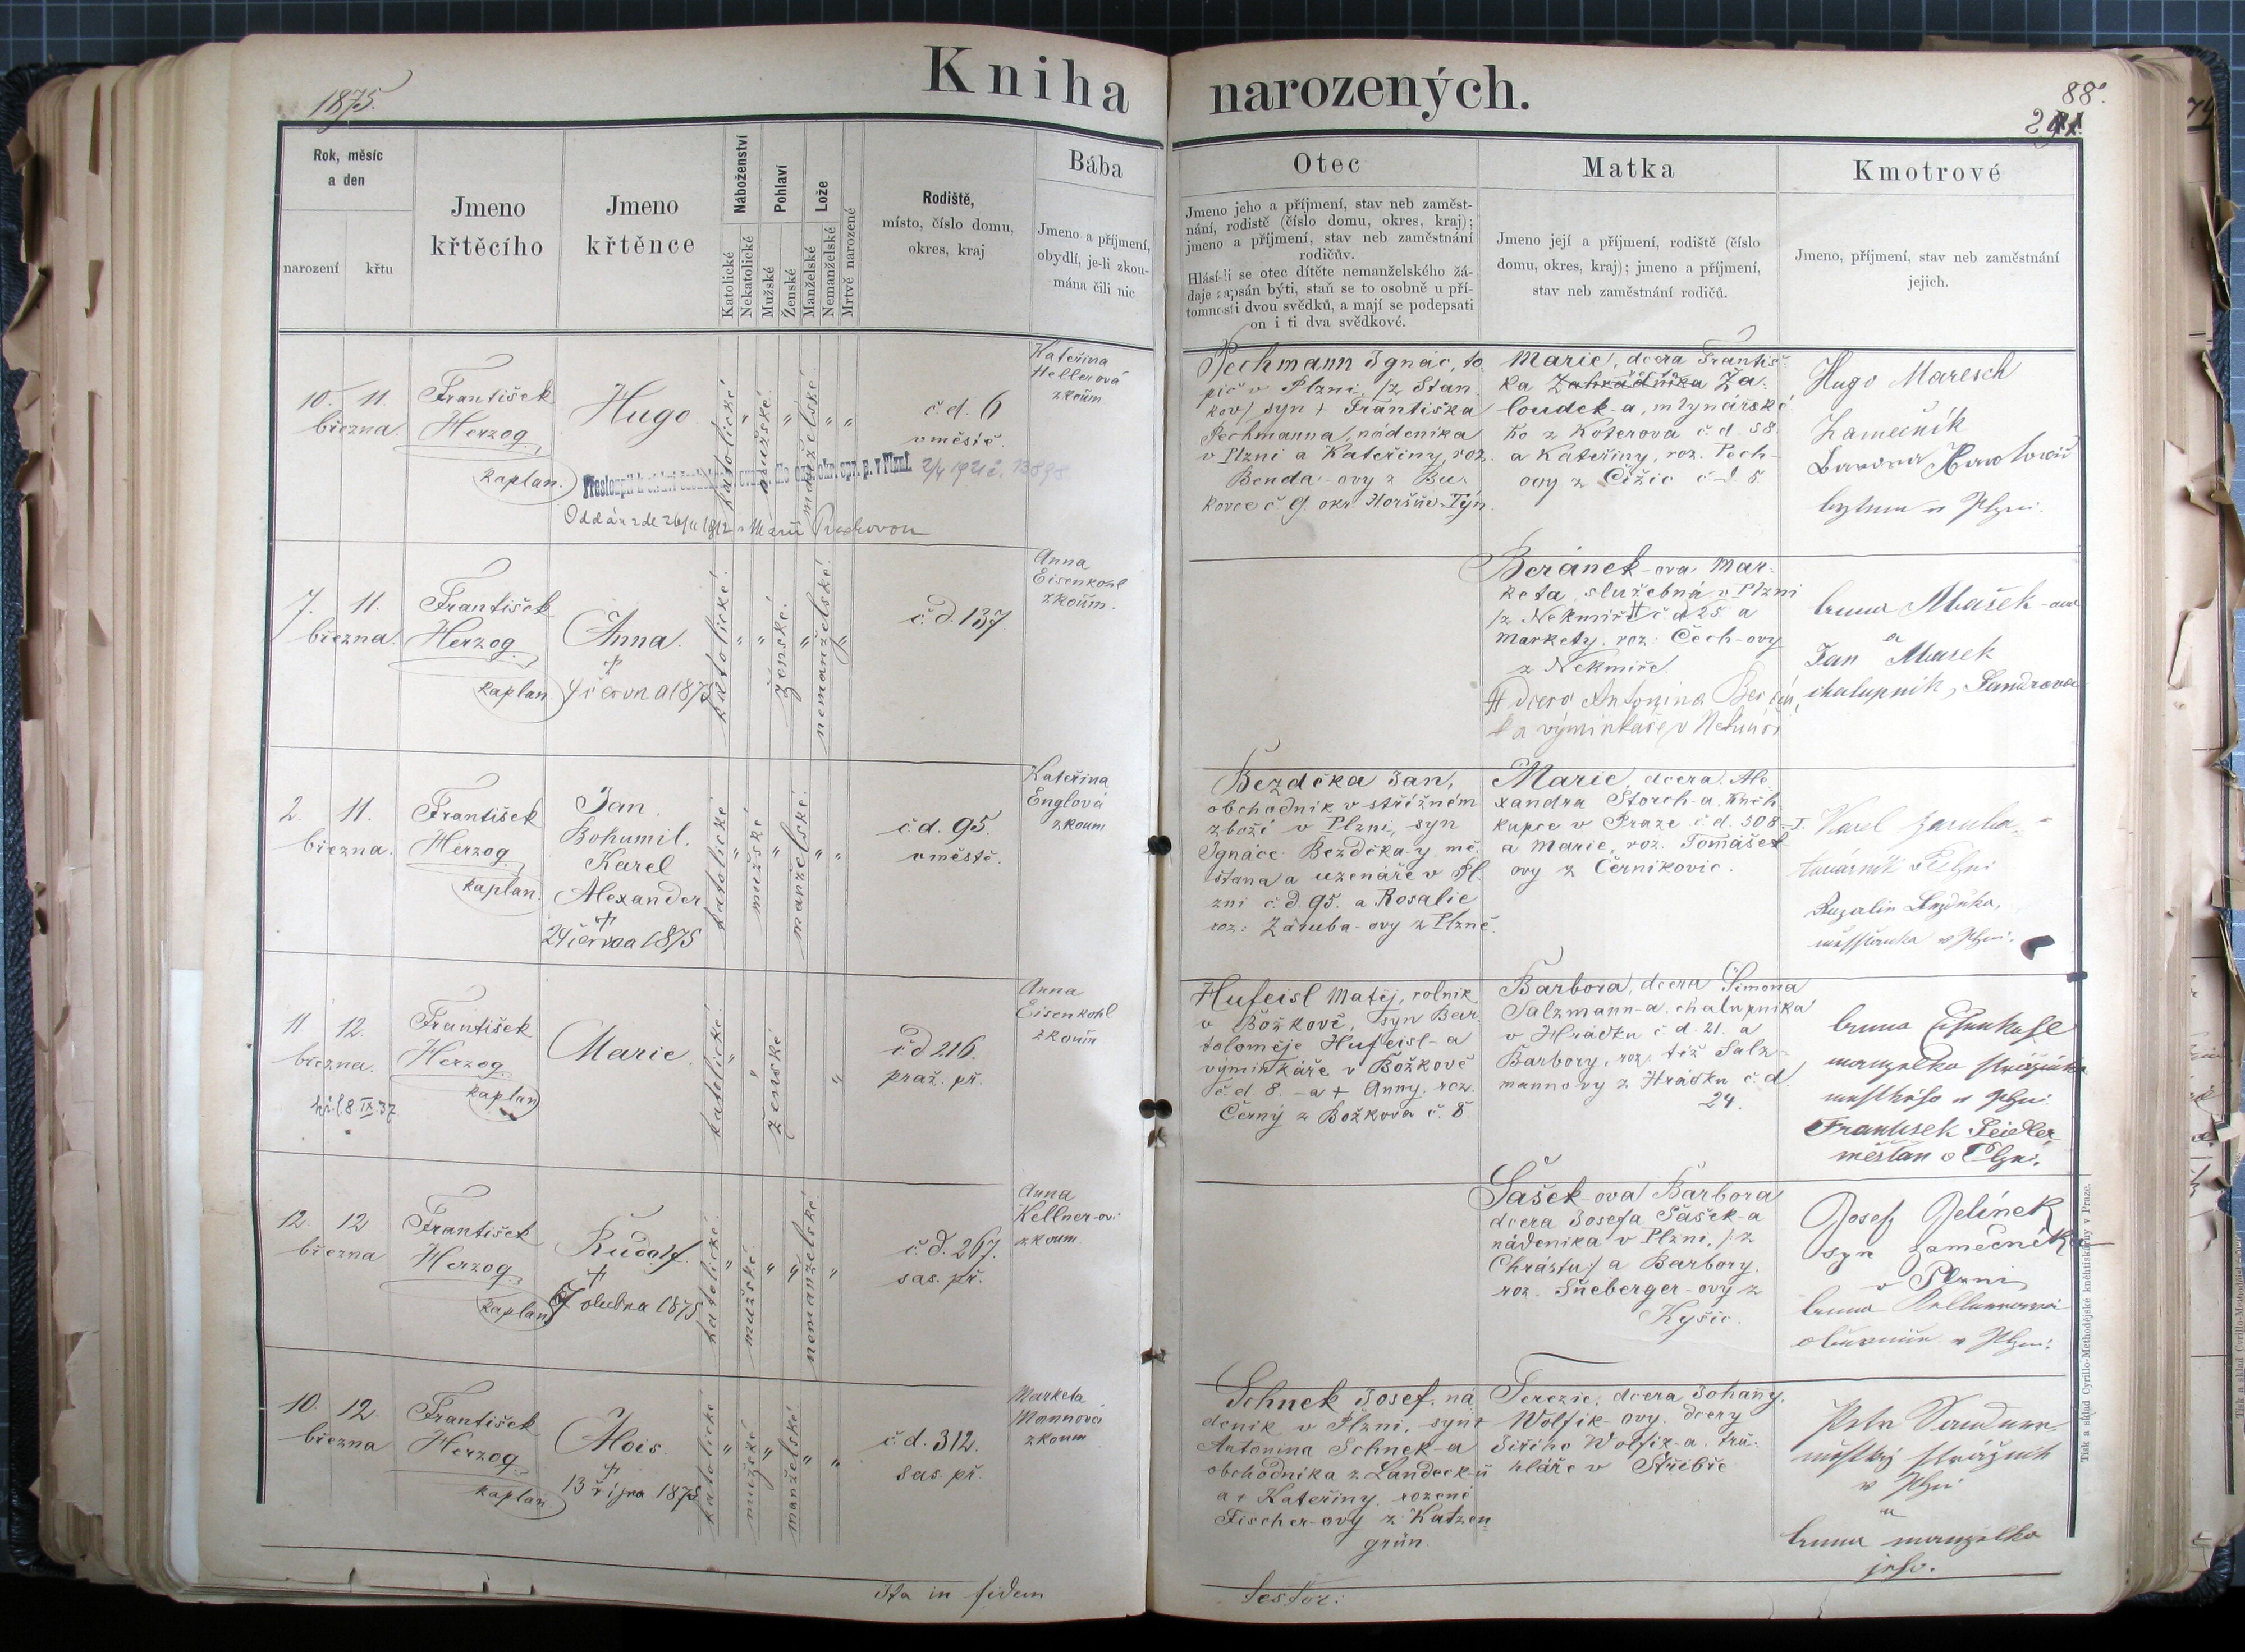 1875.
Kniha narozených.
88.
Rok, měsíc
a den
narození
křtu
Jmeno
křtěcího
Jmeno
křtěnce
Náboženství
Katolické
Nekatolické
Pohlaví
Mužské
Ženské
Lože
Manželské
Nemanželské
Mrtvě narozené
Rodiště,
místo, číslo domu,
okres, kraj
Bába
Jmeno a příjmení,
obydlí, je-li zkou-
mána čili nic
Otec
Jmeno jeho a příjmení, stav neb zaměst-
nání, rodistě (číslo domu, okres, kraj);
jmeno a příjmení, stav neb zaměstnání
rodičův.
Hlásí-li se otec dítěte nemanželského žá-
daje zapsán býti, staň se to osobně u pří-
tomnosti dvou svědků, a mají se podepsati
on i ti dva svědkové.
Matka
Jmeno její a příjmení, rodiště (číslo
domu, okres, kraj); jmeno a příjmení,
stav neb zaměstnání rodičů.
Kmotrové
Jmeno, příjmení, stav neb zaměstnání
jejich.
10. 11.
března.
František
Herzog
kaplan.
Hugo
katolické
mužské
manželské
č d. 6
v městě.
Kateřina
Hellerová
zkoum
Pechmann Ignác, to
pič v Plzni, /z Stan
kov/ syn + Františka
Pechmanna, nádeníka
v Plzni a Kateřiny, roz.
Benda-ovy z Bu-
kovce č 9. okr. Horšův-Týn.
Marie, dcera Františ
ka Zahradníka Ža-
loudek-a, mlynářské
ho z Koterova č. d. 58.
a Kateřiny, roz. Pech-
ovy z Čížic č. d. 5.
Hugo Maresch
Zámečník
bytem v Plzni.
v Plzni. 2/4 1921 č. 13898
Oddán zde 26/11 1912 s Marií
7. 11.
března.
František
Herzog
kaplan
Anna.
†
4 června 1875
katolické.
ženské.
nemanželské.
č. d. 137
Anna
Eisenkohl
zkoum.
Beránek-ova Mar-
keta, služebná v Plzni
/z Nekmíře č. d 25 a
Markety, roz: Čech-ovy
z Nekmíře.
# dcera Antonína Berán,
ka výminkáře v Nekmíři
Anna Mašek-ova
a
Jan Masek
chalupník,
2. 11.
března.
František
Herzog
kaplan.
Jan
Bohumil.
Karel
Alexander
†
24 června 1875
katolické
mužské
manželské
č d. 95.
v městě.
Kateřina
Englová
zkoum
Bezděka Jan,
obchodník v střižném
zboží v Plzni, syn
Ignáce Bezděka-y, mě-
šťana a uzenáře v Pl.
zni č. d. 95. a Rosalie
roz: Záruba-ovy z Plzně.
Marie, dcera Ale
xandra Štorch-a, knih
kupce v Praze č. d. 508-I.
a Marie, roz. Tomášek
ovy z Černikovic.
Karel Zaruba
v Plzni
Rozalie Bezděka,
měšťanka v Plzni.
11 12.
března.
František
Herzog
kaplan
Marie.
katolické.
ženské
č d 216.
praž. př.
Anna
Eisenkohl
zkoum
Hufeisl Matěj, rolník
v Božkově, syn Bar.
toloměje Hufeisl-a
výminkáře v Božkově
č. d 8. - a + Anny, roz.
Černý z Božkova č. 8.
Barbora, dcera Šimona
Salzmann-a, chalupníka
v Hrádku č. d. 21. a
Barbory, roz. též Salz-
mannovy z Hrádku č. d.
24.
Anna Eisenkohl
manželka strážníka
městského v Plzni
František Seidler
měšťan v Plzni.
12. 12
března
František
Herzog
kaplan
Rudolf.
†
katolické.
mužské.
nemanželské.
č. d. 267.
sas. př.
Anna
Kellner-ova
zkoum
Šašek-ova Barbora
dcera Josefa Šašek-a
nádeníka v Plzni, /z
Chrástu/ a Barbory,
roz. Šneberger-ovy z
Kyšic.
Josef Jelínek
syn zámečníka
v Plzni
Anna Kellnerová
v Plzni.
10. 12
března
František
Herzog
kaplan
Alois.
†
13 října 1875
katolické
mužské
manželské
č. d. 312.
sas. př.
Marketa
Mannová
zkoum
Schnek Josef, ná
deník v Plzni, syn +
Antonína Schnek-a
obchodníka z Landeck-ů
a + Kateřiny, rozené
Fischer-ovy z Katzen
grün.
Terezie, dcera Johany,
Wolfik-ovy, dcery
Jiřího Wolfik-a, tru-
hláře v Stříbře
městský strážník
v Plzni
a
Anna manželka
jeho.
Ita in fidem
testor:
Tisk a sklad Cyrillo-Methodějské knihtiskárny v Praze.